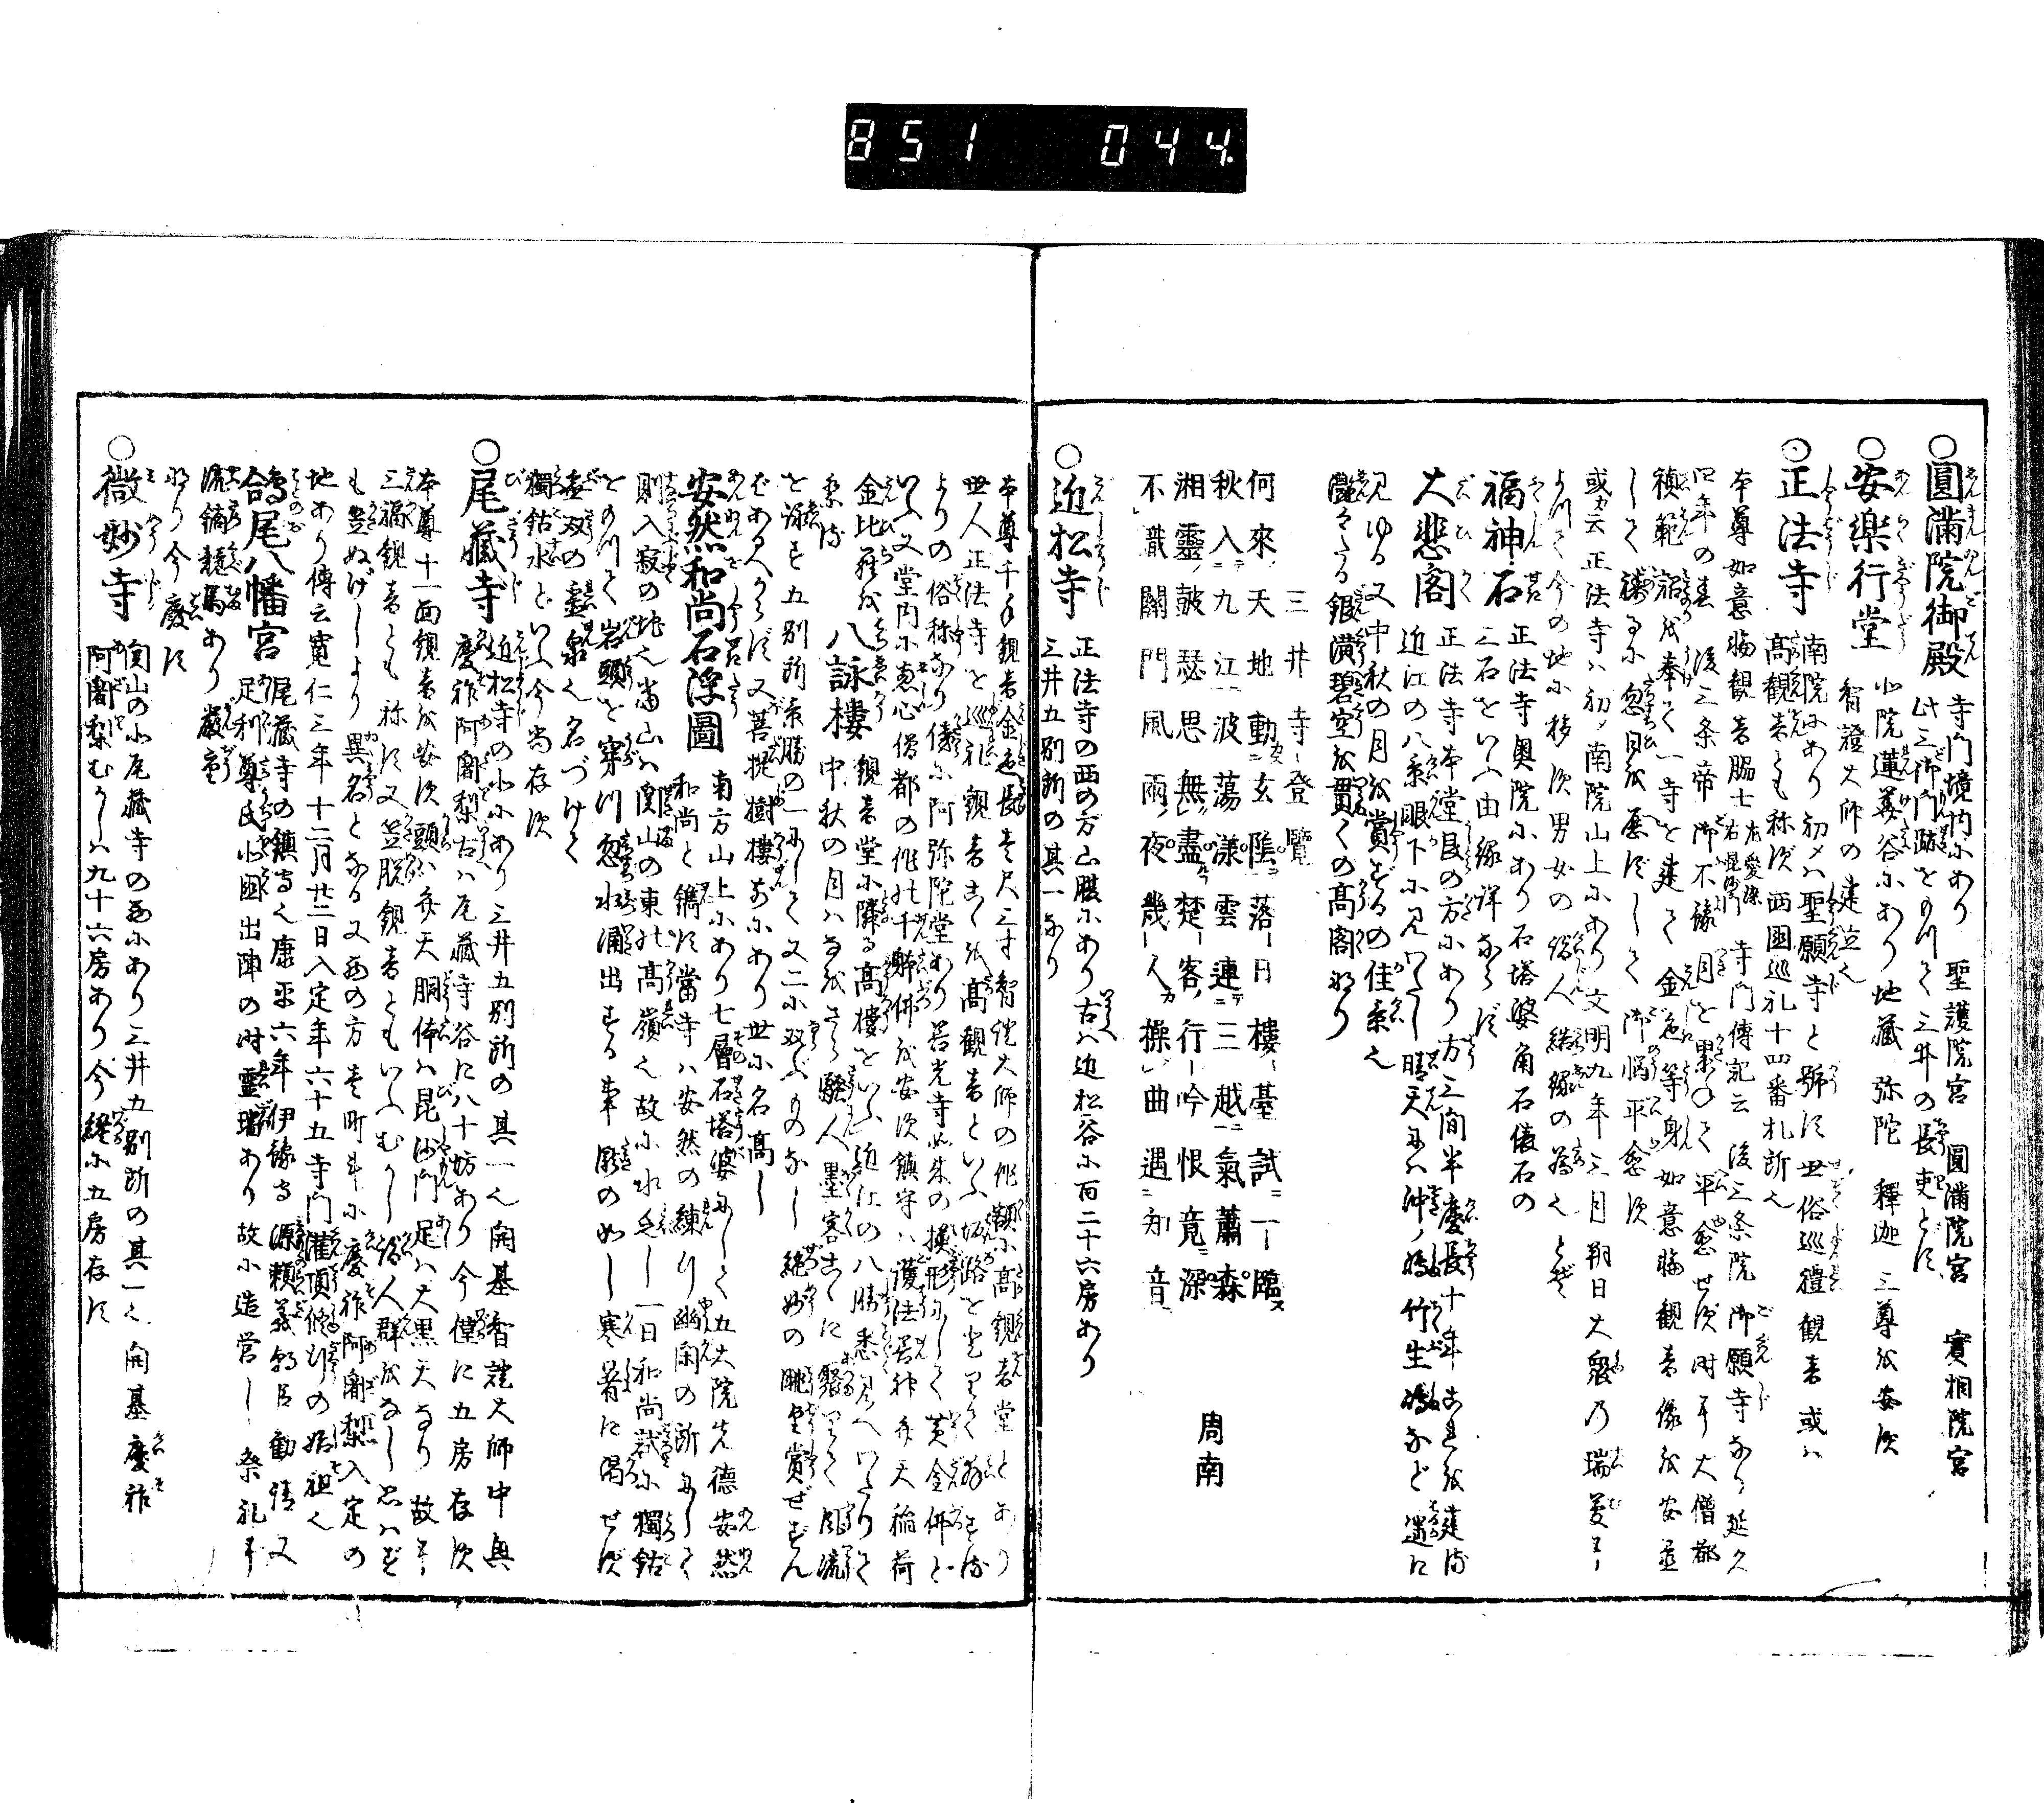 851 044
○圓満院御殿 寺門境内にあり 聖護院宮 圓満院宮 實相院宮
此三御門跡をもつて三井の長吏とす
○安樂行堂 智證大師の建立也
北院蓮華谷にあり地藏 弥陀 釋迦 三尊を安次
○正法寺 南院にあり初メは聖願寺と號す世俗巡禮観音或は
高観音とも称ず西国巡礼十四番札所也
本尊如意輪観音脇士 左愛染 右毘沙門 寺門傳記云後三条院御願寺なり延久
四年の春後三条帝御不豫月を累ねて平愈せず時に大僧都
禎範詔を奉て一寺を建て金色等身如意輪観音像を安置
して祷るに忽日を歴ずして御悩平愈次
或カ云正法寺は初メ南院山上にあり文明九年三月朔日大衆乃瑞夢に
よつて今の地に移次男女の俗人結縁の為也とぞ
福神石 正法寺奥院にあり石塔婆角石俵石の
三石をいふ由縁詳ならず
大悲閣 正法寺本堂艮の方にあり方三間半慶長十年これを建る
近江の八景眼下に見わたし晴天には沖ノ嶋竹生嶋など遙に
見ゆる又中秋の月を賞するの佳景也
銀漢碧空を貫くの高閣なり
三井寺登覽
何來天地動玄陰落日樓臺試一臨
秋入九江波蕩漾雲連三越氣蕭森
湘靈皷瑟思無盡楚客行吟恨竟深
不識關門風雨夜幾人操曲遇知音
周南
○近松寺 正法寺の西の方山腹にあり古は近松谷に百二十六房あり
三井五別所の其一なり
本尊千手観音金色長壱尺三寸智證大師の作額に高観音堂とあり
世人正法寺を巡礼観音こゝを高観音といふ
よりの俗称なり傍に阿弥陀堂あり善光寺如来の摸形にして黄金佛と
いふ又堂内に恵心僧都の作れる千躰佛を安次鎮守は護法善神弁天稲荷
金比羅を
八詠樓 観音堂に隣る高樓をいふ近江の八勝悉見へわたりて
中秋の月はなをさら騒人墨客こゝに聚りて風流
を詠ず五別所景勝の一にして又二に双ぶものなし絶妙の眺望賞ぜずんば
あるべからず又菩提樹樓前にあり世に名高し
安然和尚石浮圖 南方山上にあり七層石塔婆にして五大院先德安然
和尚と鐫す當寺は安然の練行幽閑の所にして
則入寂の地也當山は関山の東北高嶺也故に水乏し一日和尚試に獨鈷
をもつて岩頭を穿川忽水涌出する事瀧のめし寒暑に渇せず
無双の靈泉也名づけて
獨鈷水といふ今尚存次
○尾藏寺 近松寺の北にあり三井五別所の其一也開基智證大師中興
慶祚阿闍梨古は尾藏寺谷に八十坊あり今僅に五房存次
本尊十一面観音を安次頭は弁天胴体は毘沙門足は大黒天なり故に
三福観音とも称す又笠脱観音ともいふむかし俗人群をなし思はず
も笠ぬげしより異名となる又西の方壱町半に慶祚阿闍梨入定の
地あり傳云寛仁三年十二月廿二日入定年六十五寺門灌頂修行の始祖也
鴿尾八幡宮 尾藏寺の鎮守也康平六年伊豫守源頼義朝臣勧請又
足利尊氏出陣の時靈瑞あり故に造営し祭礼に
流鏑競馬あり嚴重
なり今廢す
○微妙寺 関山の北尾藏寺の西にあり三井五別所の其一也開基慶祚
阿闍梨むかしは九十六房あり今纔に五房存す